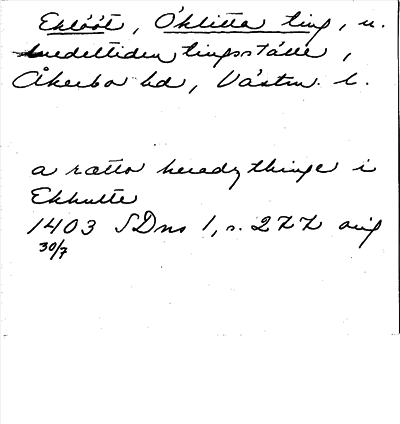 Eklööt, Öklitta ting, u.
medeltiden tingsställe,
Åkerbo hd, Västm. l.
a rætto heradz thinge i
Ekhulte
1403 SDns 1, s. 277 orig
30/7